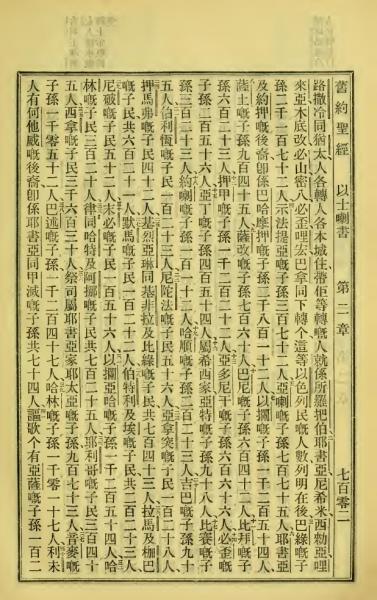 舊約聖經 以士喇書 第二章 七百零二
路撒冷同猶太人各轉人各本城住落佢等轉嘅人就係所羅把伯耶書亞尼希米西勑亞哩
來亞木底改必山密八必歪哩宏巴拿同下轉个這等以色列民嘅人數列明在後巴綠嘅子
孫二千一百七十二人示法提亞嘅子孫三百七十二人亞喇嘅子孫七百七十五人耶書亞
及約押嘅後裔卽係巴哈摩押嘅子孫二千八百一十二人以攔嘅子孫一千二百五十四人
薩土嘅子孫九百四十五人薩改嘅子孫七百六十人巴尼嘅子孫六百四十二人比拜嘅子
孫六百二十三人押甲嘅子孫一千二百二十二人亞多尼干嘅子孫六百六十六人必歪嘅
子孫二百五十六人亞丁嘅子孫四百五十四人屬希西家亞特嘅子孫九十八人比賽嘅子
孫三百二十三人約喇嘅子孫一百一十二人哈順嘅子孫二百二十三人吉巴嘅子孫九十
五人伯利恆嘅子民一百二十三人尼陀法嘅子民五十六人亞拿突嘅子民一百二十八人
押馬弗嘅子民四十二人基烈亞琳同基非拉及比綠嘅子民共七百四十三人拉馬及枷巴
嘅子民共六百二十一人默馬嘅子民一百二十二人伯特利及埃嘅子民共二百二十三人
尼破嘅子民五十二人末必嘅子民一百五十六人以攔亞哈嘅子孫一千二百五十四人哈
林嘅子民三百二十人律同哈特及阿挪嘅子民共七百二十五人耶利哥嘅子民三百四十
五人西拿嘅子民三千六百三十人祭司屬耶書亞家耶太亞嘅子孫九百七十三人音麥嘅
子孫一千零五十二人巴述嘅子孫一千二百四十七人哈林嘅子孫一千零一十七人利未
人有何他威嘅後裔卽係耶書亞同甲滅嘅子孫共七十四人謳歌个有亞薩嘅子孫一百二